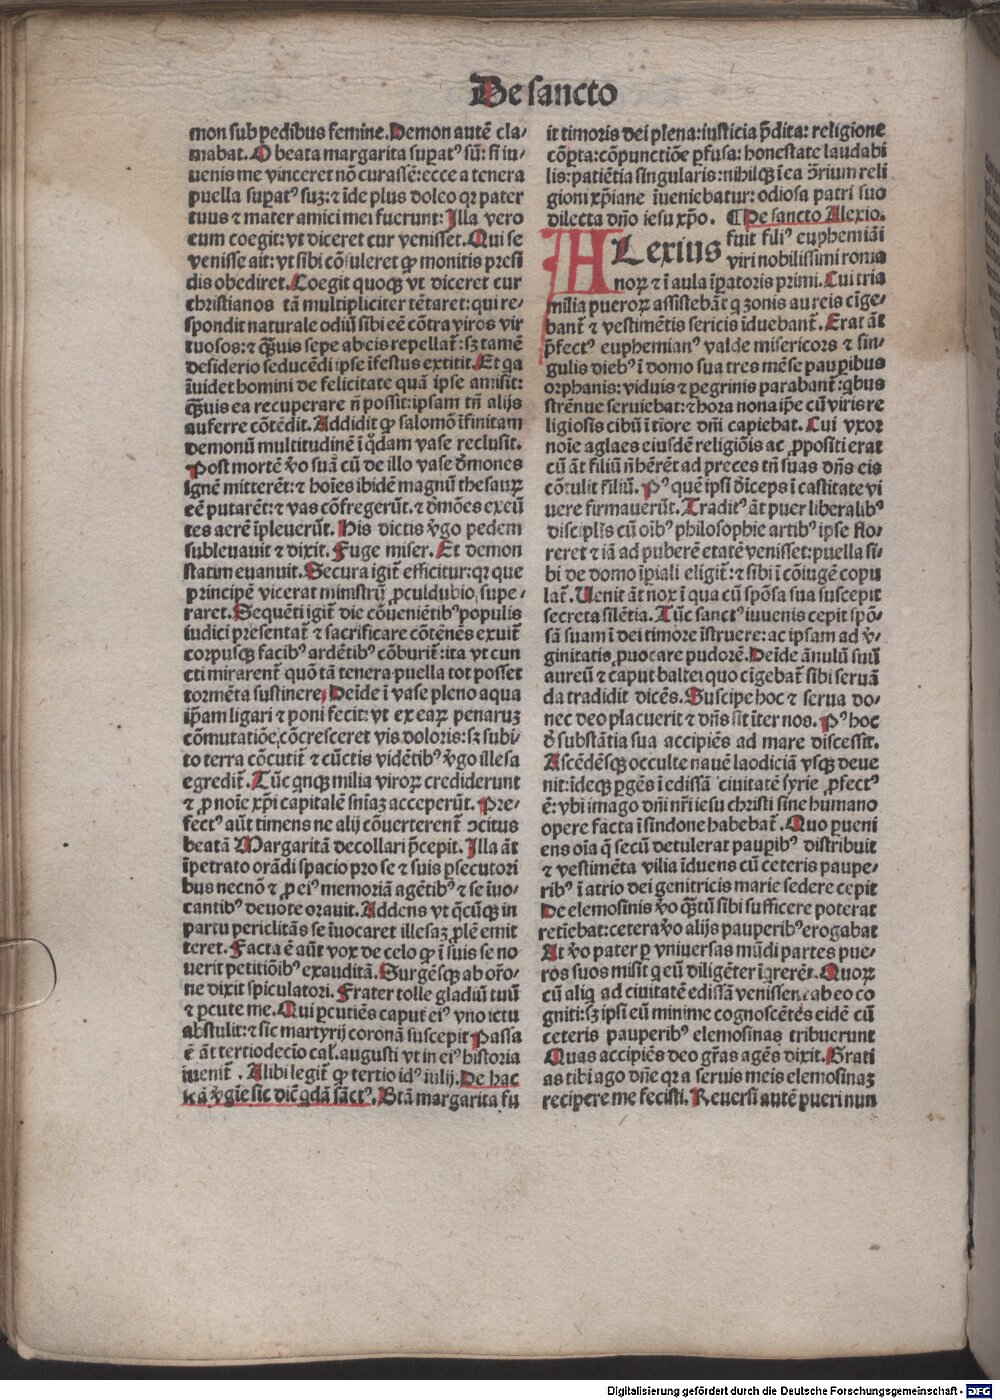 De sancto
mon sub pedibus femine. Demon autē cla-
mabat. O beata margarita suꝑatꝰ sū: si iu-
uenis me vinceret nō curassē: ecce a tenera
puella suꝑatꝰ suꝫ: ⁊ īde plus doleo qꝛ pater
tuus ⁊ mater amici mei fuerunt: Illa vero
eum coegit: vt diceret cur venisset. Qui se
venisse ait: vt sibi cōsuleret ꝙ monitis presi
dis obediret. Coegit quoqꝫ vt diceret cur
christianos tā multipliciter tētaret: qui re-
spondit naturale odiū sibi eē cōtra viros vir
tuosos: ⁊ qꝫuis sepe ab eis repellat̄: sꝫ tamē
desiderio seducēdi ipse īfestus extitit. Et qa
īuidet homini de felicitate quā ipse amisit:
qꝫuis ea recuperare n̄ possit: ipsam tn̄ alijs
auferre cōtēdit. Addidit ꝙ salomō īfinitam
demonū multitudinē ī q̇dam vase reclusit.
Post mortē v̄o suā cū de illo vase d̄mones
ignē mitterēt: ⁊ hoīes ibidē magnū thesaurꝫ
eē putarēt: ⁊ vas cōfregerūt. ⁊ d̄mōes excū
tes aerē īpleuerūt. His dictis v̄go pedem
subleuauit ⁊ dixit. Fuge miser. Et demon
statim euanuit. Secura igit̄ efficitur: qꝛ que
principē vicerat ministrū ꝓculdubio supe-
raret. Sequēti igit̄ die cōueniētibꝰ populis
iudici presentat̄ ⁊ sacrificare cōtēnēs exuit̄
corpusqꝫ facibꝰ ardētibꝰ cōburit̄: ita vt cun
cti mirarent̄ quō tā tenera puella tot posset
tormēta sustinere. Deīde ī vase pleno aqua
ip̄am ligari ⁊ poni fecit: vt ex eaꝝ penaruꝫ
cōmutatiōe cōcresceret vis doloris: sꝫ subi-
to terra cōcutit̄ ⁊ cūctis vidētibꝰ v̄go illesa
egredit̄. Tūc qnqꝫ milia viroꝝ crediderunt
⁊ ꝓ noīe xp̄i capitalē sn̄iaꝫ acceperūt. Pre-
fectꝰ aūt timens ne alij cōuerterent̄ ɔcitus
beatā Margaritā decollari p̄cepit. Illa āt
īpetrato orādi spacio pro se ⁊ suis ꝑsecutori
bus necnō ⁊ ꝓ eiꝰ memoriā agētibꝰ ⁊ se īuo-
cantibꝰ deuote orauit. Addens vt q̄cūqꝫ in
partu periclitās se īuocaret illesaꝫ ꝓlē emit
teret. Facta ē aūt vox de celo ꝙ ī suis se no
uerit petitiōibꝰ exauditā. Surgēsqꝫ ab or̄o-
ne dixit spiculatori. Frater tolle gladiū tuū
⁊ ꝑcute me. Qui ꝑcutiēs caput eiꝰ vno ictu
abstulit: ⁊ sic martyrij coronā suscepit Passa
ē āt tertiodecīo cal̄. augusti vt in eiꝰ historia
īuenit̄. Alibi legit̄ ꝙ tertio idꝰ iulij. De hac
v̄gīe sic dic̄ q̇dā sāctꝰ. Btā margarita fu
it timoris dei plena: iusticia p̄dita: religione
cōp̄ta: cōpunctiōe ꝑfusa: honestate laudabi
lis: patiētia singularis: nihilqꝫ ī ea ɔ̄rium reli
gioni xp̄iane īueniebatur: odiosa patri suo
dilecta dn̄o iesu xp̄o. ¶De sancto Alexio.
ALexius fuit filiꝰ euphemiāi
viri nobilissimi roma
noꝝ ⁊ ī aula īꝑatoris primi. Cui tria
milia pueroꝝ assistebāt q zonis aureis cīge-
bant̄ ⁊ vestimētis sericis īduebant̄. Erat āt
p̄fectꝰ euphemianꝰ valde misericors ⁊ sin-
gulis diebꝰ ī domo sua tres mēse pauꝑibus
orphanis: viduis ⁊ ꝑegrinis parabant̄: qbus
strēnue seruiebat: ⁊ hora nona ip̄e cū viris re
ligiosis cibū ī tīore dn̄i capiebat. Cui vxor
noīe aglaes eiusdē religiōis ac ꝓpositi erat
cū āt filiū n̄ hērēt ad preces tn̄ suas dn̄s eis
cōtulit filiū. Pꝰ quē ipsi d̄īceps ī castitate vi
uere firmauerūt. Traditꝰ āt puer liberalibꝰ
disciplīs cū oībꝰ philosophie artibꝰ ipse flo-
reret ⁊ iā ad puberē etatē venisset: puella si-
bi de domo īꝑiali eligit̄: ⁊ sibi ī cōiugē copu
lat̄. Uenit āt nox ī qua cū spōsa sua suscepit
secreta silētia. Tūc sanctꝰ iuuenis cepit spō-
sā suam ī dei timore īstruere: ac ipsam ad v̄-
ginitatis ꝓuocare pudorē. Deīde ānulū suū
aureū ⁊ caput baltei quo cīgebat̄ sibi seruā
da tradidit dicēs. Suscipe hoc ⁊ serua do-
nec deo placuerit ⁊ dn̄s sit īter nos. Pꝰ hoc
d̄ substātia sua accipiēs ad mare discessit.
Ascēdēsqꝫ occulte nauē laodiciā vsqꝫ deue
nit: ideqꝫ ꝑgēs ī edissā ciuitatē syrie ꝓfectꝰ
ē: vbi imago dn̄i nr̄i iesu christi sine humano
opere facta ī sindone habebat̄. Quo ꝑueni
ens oīa q̄ secū detulerat pauꝑibꝰ distribuit
⁊ vestimēta vilia īduens cū ceteris paupe-
ribꝰ ī atrio dei genitricis marie sedere cepit
De elemosinis v̄o qꝫtū sibi sufficere poterat
retīebat: cetera v̄o alijs pauperibꝰ erogabat
At v̄o pater ꝑ vniuersas mūdi partes pue-
ros suos misit q eū diligēter īqrerēt. Quoꝝ
cū aliq ad ciuitatē edissā venissent ab eo co
gniti: sꝫ ipsi eū minime cognoscētes eidē cū
ceteris pauperibꝰ elemosinas tribuerunt
Quas accipiēs deo gr̄as agēs dixit. Grati
as tibi ago dn̄e qꝛ a seruis meis elemosinaꝫ
recipere me fecisti. Reuersi autē pueri nun
Digitalisierung gefördert durch die Deutsche Forschungsgemeinschaft - DFG